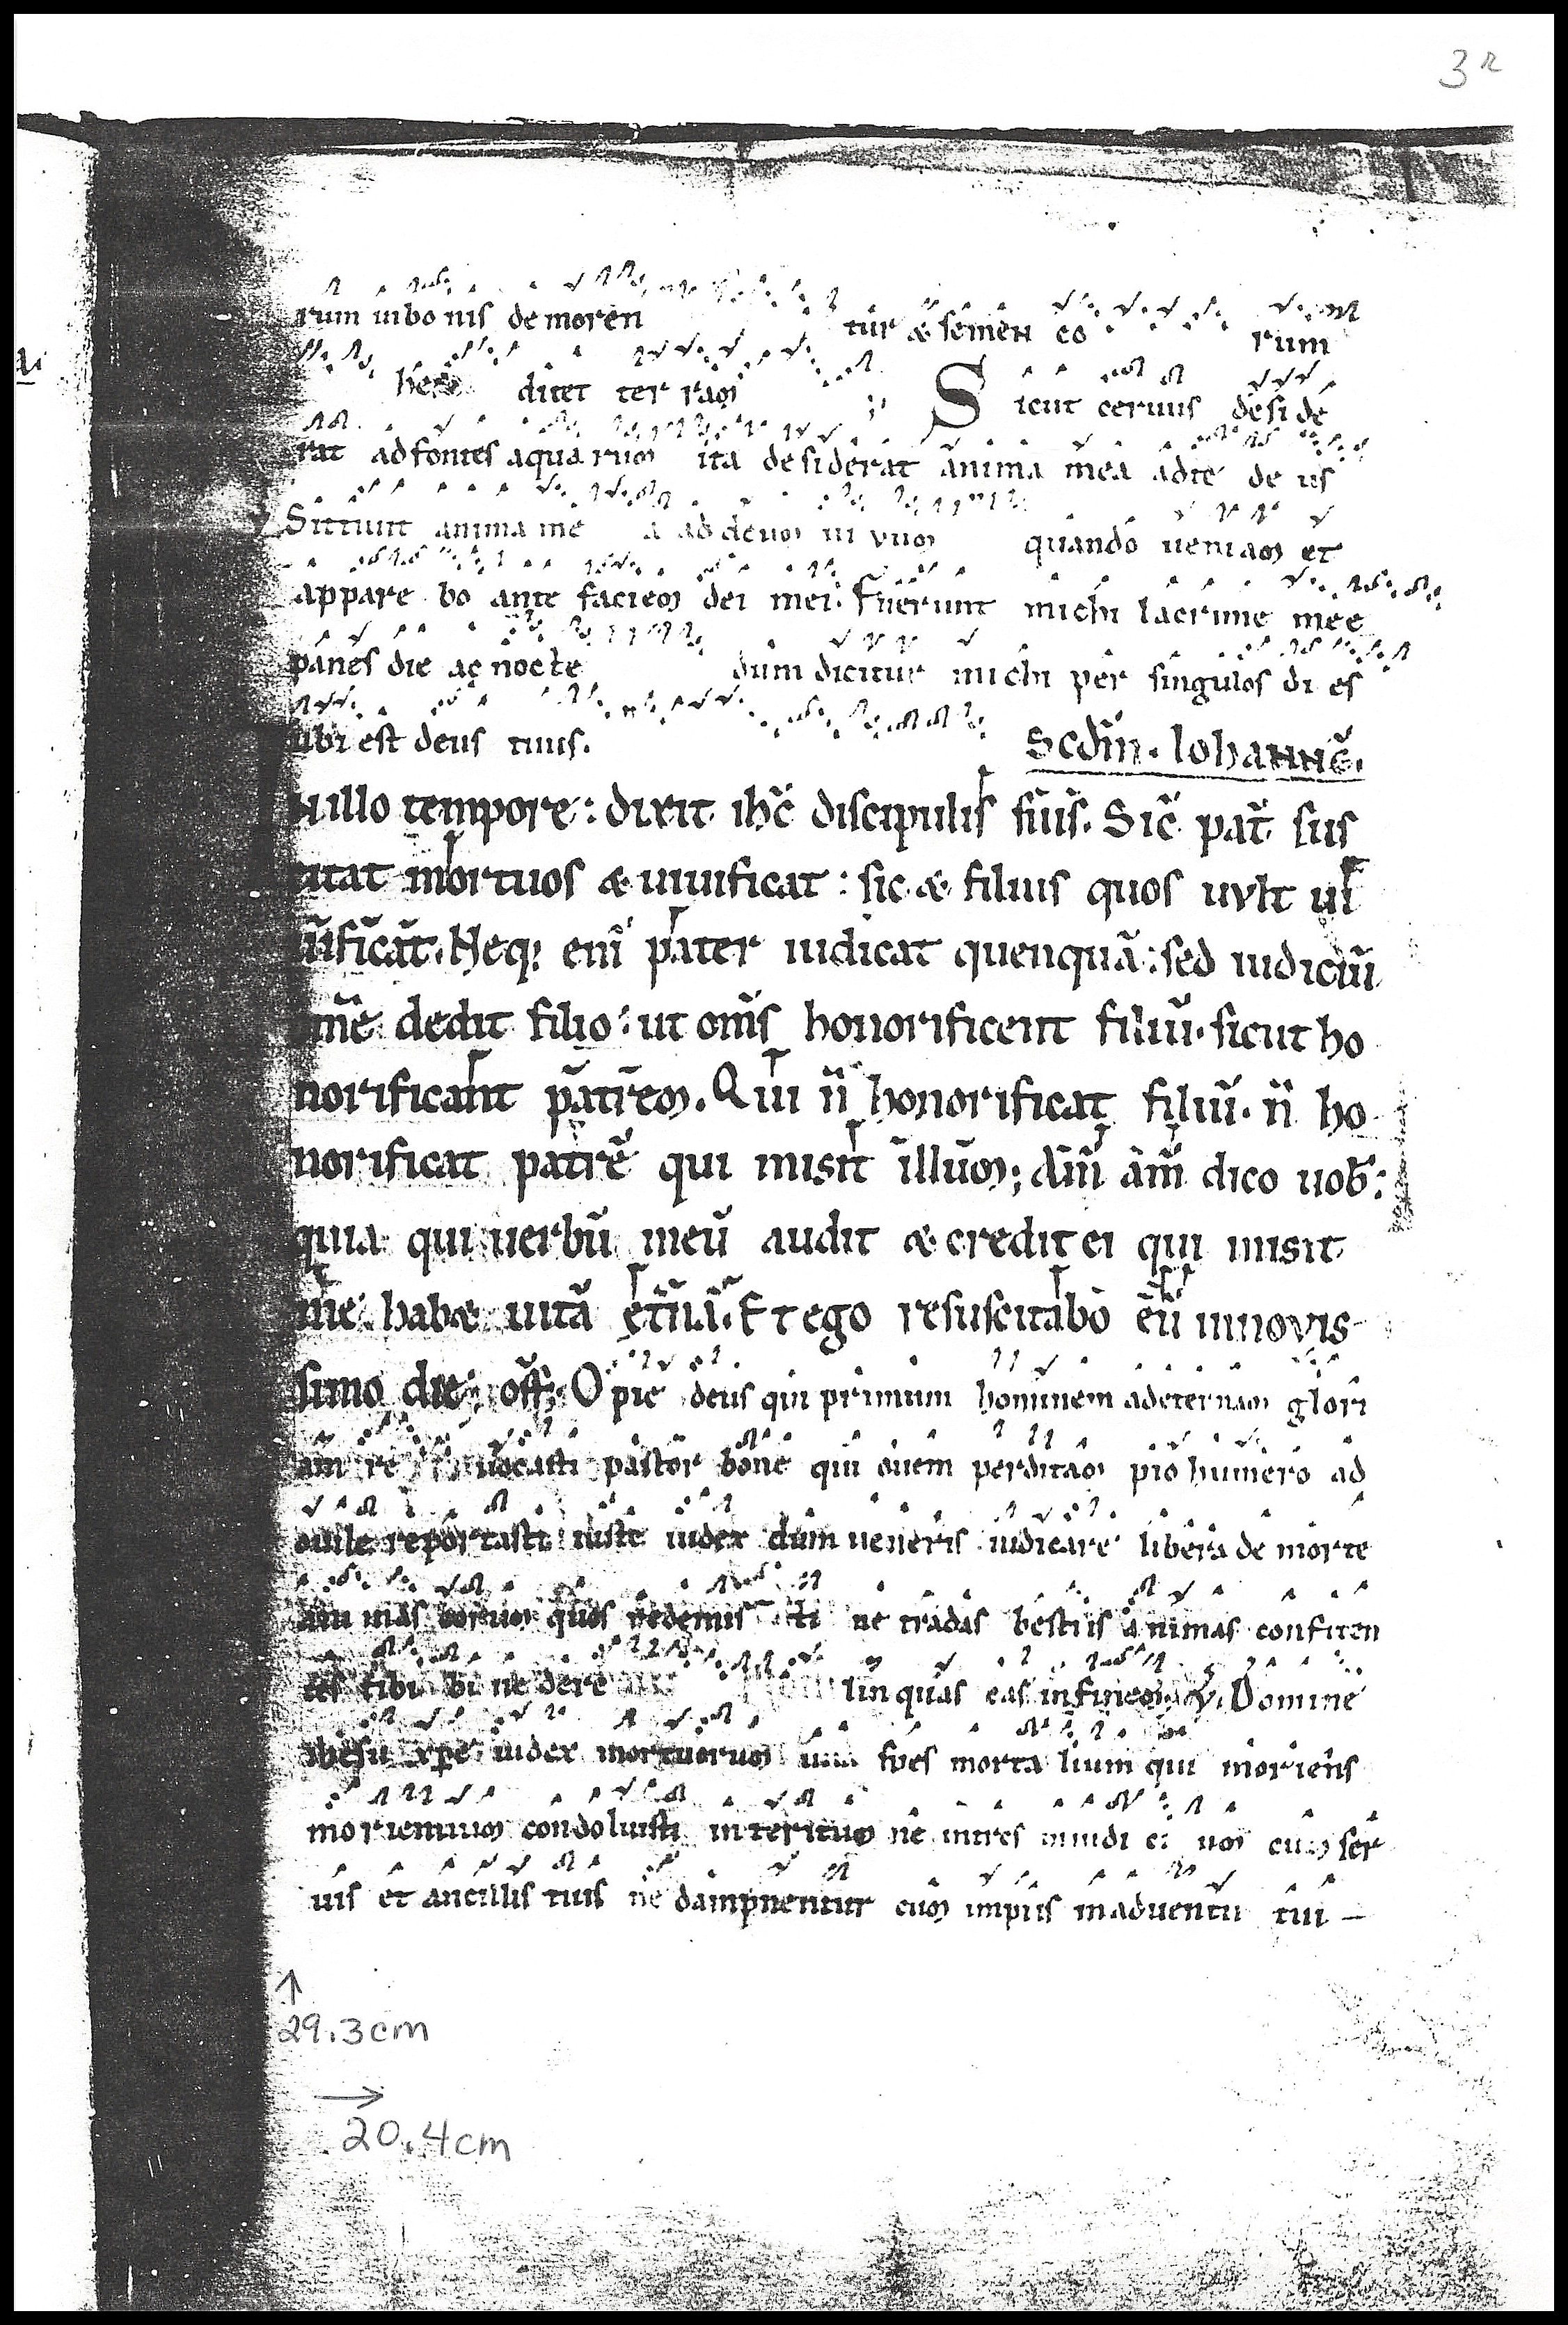 3r
rum in bo nis de moren tur & semen eo rum
here ditet ter ram ; Sicut ceruus deside
rat ad fontes aqua rum ita desiderat anima mea ad te de us
Sitiuit anima me a ad deum ui vum quando ueniam et
appare bo ante faciem dei mei. Fuerunt michi lacrime mee
panes die ac nocte dum dicitur michi per singulos di es
ubi est deus tuus. Scdm. Iohanne.
N illo tempore: dixit ihc discipulis suis. Sic pat sus
citat mortuos & uiuificat: sic & filius quos uult ui
uificat. Neq; eni pater iudicat quenquã: sed iudiciũ
omẽ dedit filio: ut oms honorificent filiũ. sicut ho
norificant patrem. Qui ñ honorificat filiũ. ñ ho
norificat patrẽ qui misit illum; Am am dico uob:
quia qui uerbũ meũ audit & credit ei qui misit
me. hab& uitã etnã. Et ego resuscitabo eũ in novis
simo die; off; O pie deus qui primum hominem ad eternam glori
am re uocasti pastor bone qui ouem perditam pio humero ad
ouile reportasti iuste iudex dum ueneris iudicare libera de morte
ani mas eorum quos redemis ti ne tradas bestiis animas confiten
tes tibi bi ne dere lin quas eas in finem. V. Domine
ihesu xpe iudex mortuorum una spes morta lium qui moriens
morientium condoluisti interitum ne intres iudi ci um cum ser
uis et ancillis tuis ne dampnentur cum impiis in aduentu tui –
↑
29.3cm
→
20.4cm